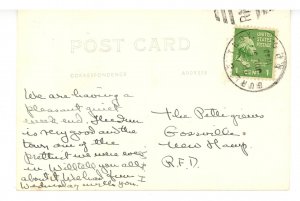 POST CARD
CORRESPONDENCE
ADDRESS
UNITED STATES
POSTAGE
1 CENT 1
We are having a
pleasant quiet
week end.
is very good and the
town one of the
prettiest we were ever
in Will tell you all
about it
Wednesday
The Pettigrews
Gossville
New Hamp.
R.F.D.